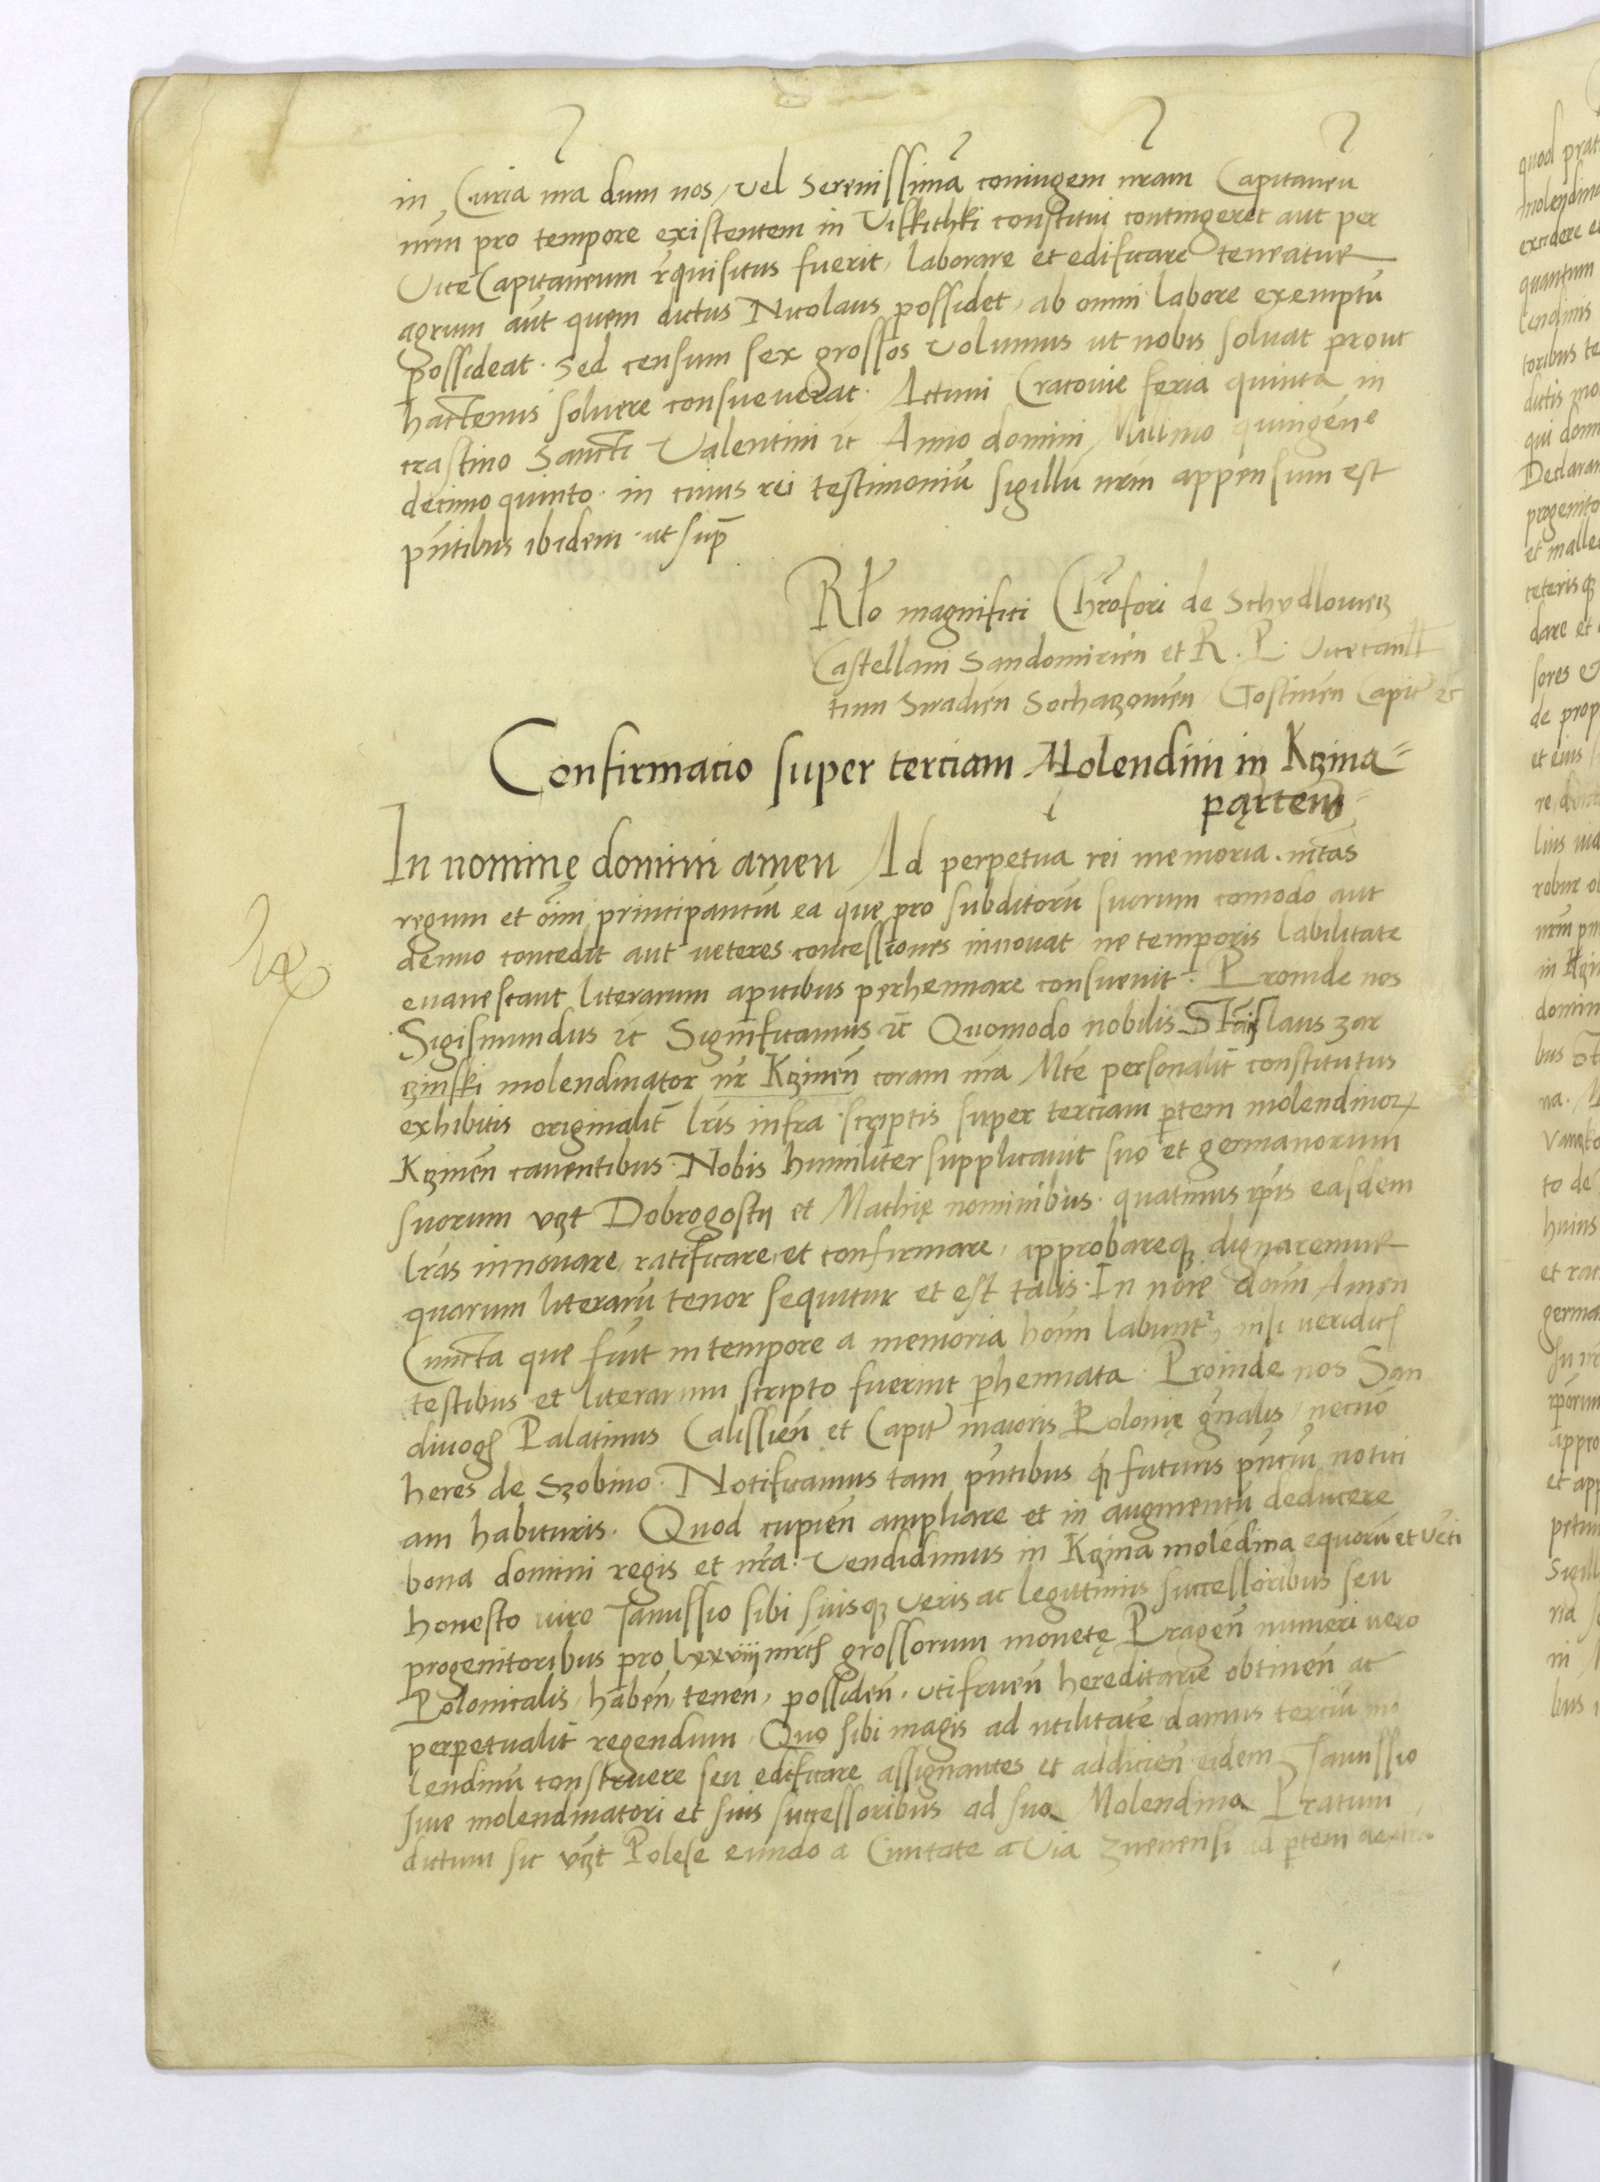 in Curia nra dum nos, vel Serenissimā coniugem nram Capitaneū
nrm pro tempore existentem in Viskithki constitui contingeret aut per
Vice Capitaneum rquisitus fuerit, laborare et edificare teneatur
agrum aūt quem dictus Nicolaus possidet, ab omni labore exemptū
possideat. Sed censum sex grossos volumus ut nobis soluat prout
hactenus soluere consueuerat. Actum Cracovie feria quinta in
crastino Sancti Valentini ꝛc Anno domini Millmo quingene
decimo quinto. in cuius rei testimoniū sigillū nrm appensum est
pntibus ibidem. ut sup
Rlo magnifici Chrofori de Schydlowiecz
Castellani Sandomirien et R. P. Vicecanll
cum Siradien Sochaczouien, Gostinen Capit ꝛc
Confirmacio super terciam Molendini in Kczina=
partem=
In nomine domini amen Ad perpetua rei memoria. mtas
regum et oim principantiū ea que pro subditorū suorum comodo aut
denuo concedit aut veteres concessiones innouat, ne temporis labilitate
euanescant literarum apicibus perhennare consueuit. Proinde nos
Sigismundus ꝛc Significamus ꝛc Quomodo nobilis Stanislaus zar
czinski molendinator nr Kczinen coram nra Mte personalit constitutus
exhibitis originalit lris infra scriptis super terciam ptem molendinoꝝ
Kczinen cauentibus. Nobis humiliter supplicauit suo et germanorum
suorum vꝫt Dobrogostij et Mathie nominibus. quatinus ipis easdem
lras innouare, ratificare, et confirmare, approbareqꝫ dignaremur
quarum literarū tenor sequitur et est talis. In noie doim Amen
Cuncta que fiūt in tempore a memoria hoim labunt, nisi veridicis
testibus et literarum scripto fuerint phennata. Proinde nos San
divogs Palatinus Calissien et Capit maioris Polonie gnalis, necnō
heres de Szobino. Notificamus tam pntibus qꝫ futuris pnciū notici
am habituris. Quod cupien ampliare et in augmentū deducere
bona domini regis et nra. Vendidimus in Kczina molēdina equorū et vēti
honesto viro Janussio sibi suisqꝫ veris ac legittimis successoribus seu
progenitoribus pro lxxviiij mrcis grossorum monete Pragen numeri vero
Polonicalis, haben, tenen, possiden, utifruen hereditarie obtinen ac
perpetualit regendum. Quo sibi magis ad utilitate damus terciū mo
lendinū construere seu edificare assignantes et addicien eidem Janussio
sive molendinatori et suis successoribus ad sua Molendina Pratum
dictum sic vꝫt Polese eundo a Ciuitate a Via Znenensi ad ptem dextra